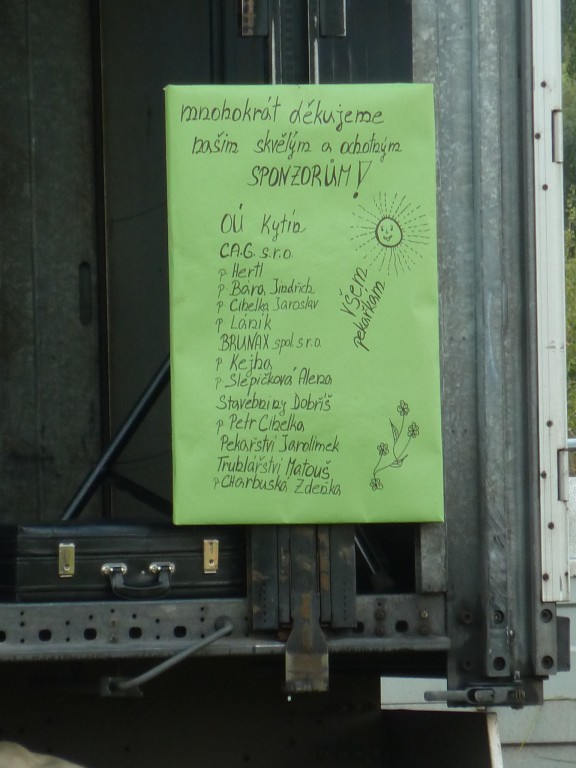 mnohokrát děkujeme
našim skvělým a ochotným
SPONZORŮM!
OÚ Kytín
C.A.G. s.r.o.
p Hertl
p Bara Jindřich
p Cibelka Jaroslav
p Láník
BRUNAX spol. s r.o.
p Kejha
p Slepičková Alena
Stavebniny Dobříš
p Petr Cibelka
Pekařství Jarolímek
Truhlářství Matouš
p CHarbuská Zdeňka
všem
pekařkám